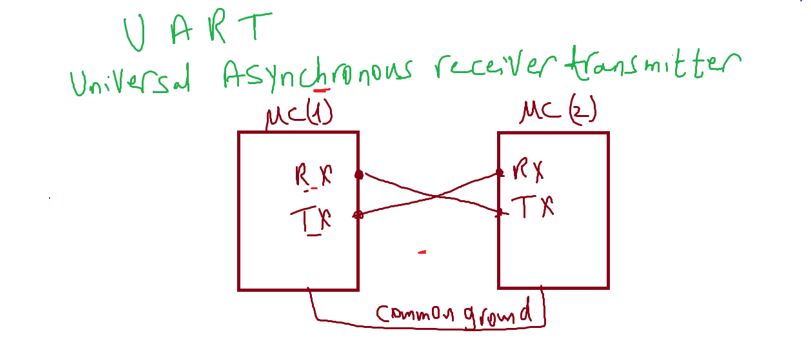 UART
Universal Asynchronous receiver transmitter
μC(1) μC(2)
RX RX
TX TX
common ground